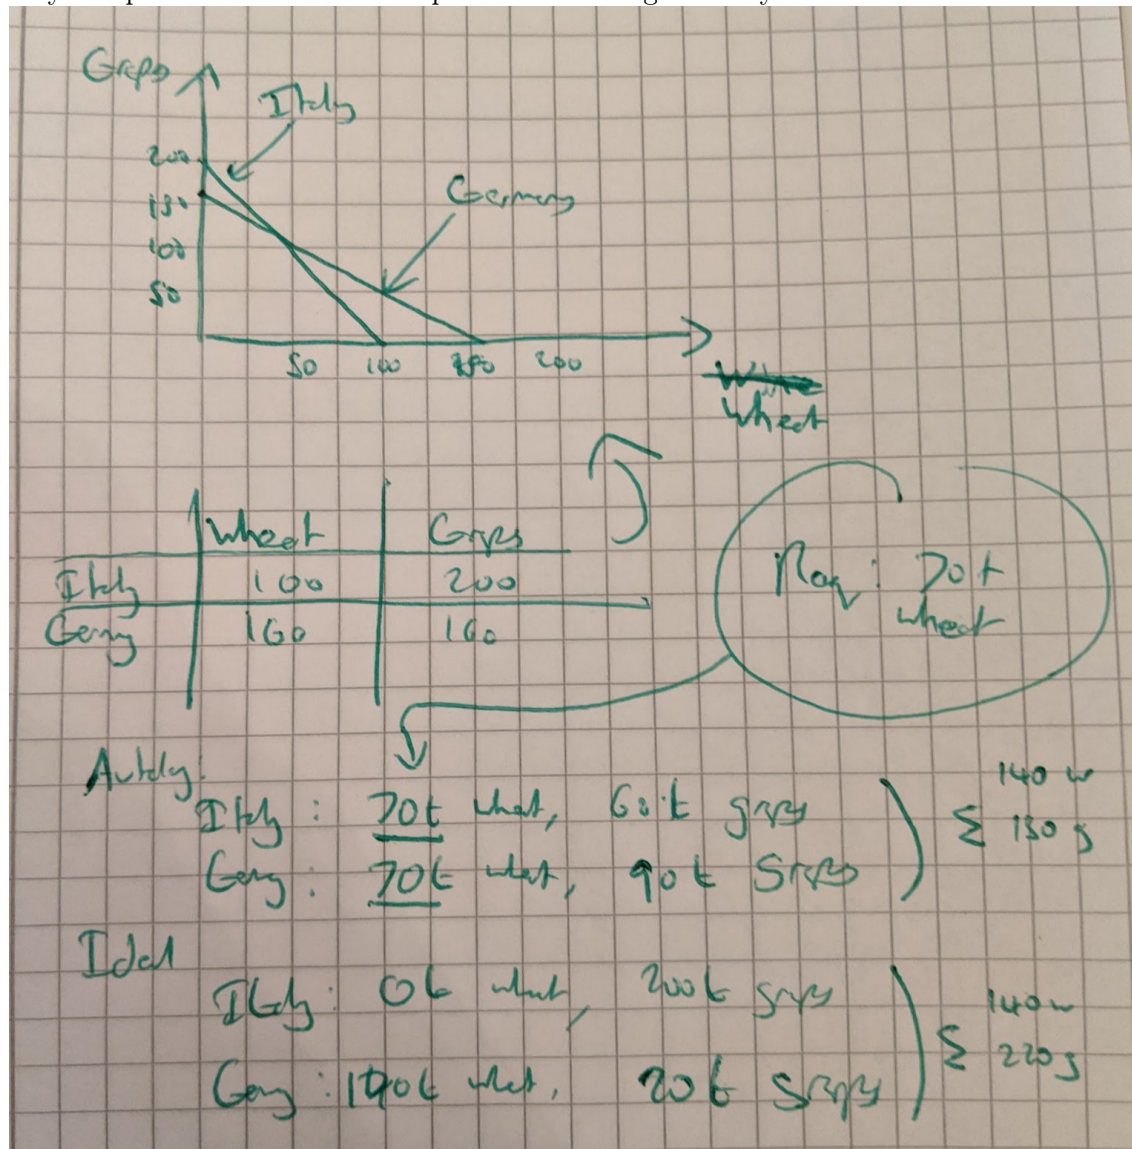 Graps
Italy
200
Germany
150
100
50
50 100 150 200
Wheat
Wheat Graps
Italy 100 200
Germany 160 160
Req: 70t
wheat
Autarky:
Italy: 70t wheat, 60t graps
Germany: 70t wheat, 90t graps
Σ 140 w
150 g
Ideal
Italy: 0t wheat, 200t graps
Germany: 140t wheat, 20t graps
Σ 140 w
220 g